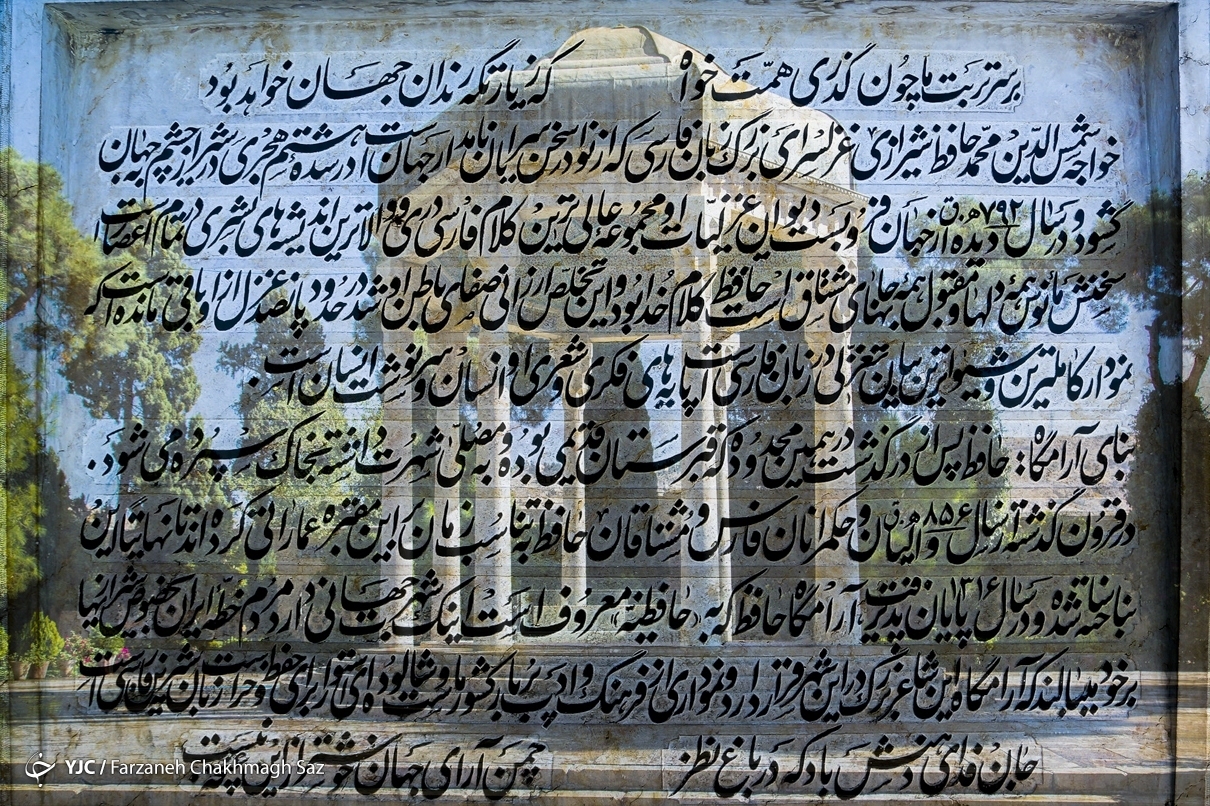 بر سر تربت ما چون گذری همّت خواه که زیارتگه رندان جهان خواهد بود
خواجه شمس الدّین محمّد حافظ شیرازی غزلسرای بزرگ زبان فارسی که از نوادر سخن سرایان نامدار جهان است در سده هشتم هجری در شیراز چشم به جهان
گشود و در سال ۷۹۲ ه.ق دیده از جهان فرو بست دیوان غزلیات او مجموعه عالی ترین کلام فارسی دری و والاترین اندیشه های بشری در تمام اعصار است
سخنش مأنوس همه دلها و مقبول همه جانهای مشتاق است حافظ کلام خدا بود و این تخلّص از زانی صفای باطن او شد در حدود پانصد غزل از او باقی مانده است که
نمودار کاملترین و شیواترین بیان تغزلی در زبان فارسی است پایه های فکری و شعری او انسان و سرنوشت انسان است.
بنای آرامگاه: حافظ پس از درگذشت در همین محدوده که قبرستان قدیمی بوده و به مصلّی شهرت داشته بخاک سپرده می شود.
در قرون گذشته از سال ۸۵۶ ه.ق والیان و حکمرانان فارس و مشتاقان حافظ به تناسب زمان بر این مقبره عماراتی کرده اند تا نهایتاً این
بنا ساخته شد و در سال ۱۳۱۶ پایان پذیرفت آرامگاه حافظ که به «حافظیه» معروف است اینک شهرت جهانی دارد مردم خطّه ایران بخصوص شیرازیها
بر خود میبالند که آرامگاه این شاعر بزرگ در این شهر قرار دارد و نموداری از فرهنگ و ادب پربار کشور ماست و شالوده ای استوار برای حفظ و حراست زبان شیرین فارسی است
جان فدای دهنش باد که در باغ نظر چمن آرای جهان خوشتر از این غنچه نبست
YJC / Farzaneh Chakhmagh Saz